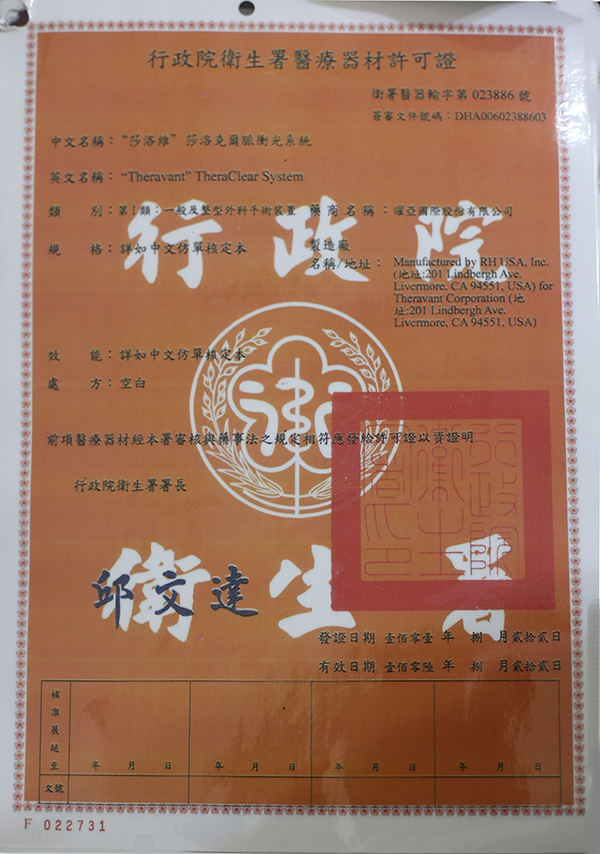 行政院衛生署醫療器材許可證
衛署醫器輸字第 023886 號
簽審文件號碼：DHA00602388603
中文名稱："莎洛維" 莎洛克爾脈衝光系統
英文名稱："Theravant" TheraClear System
類　別：第I類：一般及整型外科手術裝置 藥商名稱：曜亞國際股份有限公司
規　格：詳如中文仿單核定本 製造廠
名稱/地址： Manufactured by RH USA, Inc.
(地址:201 Lindbergh Ave.
Livermore, CA 94551, USA) for
Theravant Corporation (地
址:201 Lindbergh Ave.
Livermore, CA 94551, USA)
行政院
效　能：詳如中文仿單核定本
處　方：空白
前項醫療器材經本署審核與藥事法之規定相符應發給許可證以資證明
行政院衛生署署長
邱文達
衛生署
行政院衛生署印
發證日期 壹佰零壹 年 捌 月貳拾貳日
有效日期 壹佰零陸 年 捌 月貳拾貳日
核准展延至
年 月 日 年 月 日 年 月 日 年 月 日
文號
F 022731